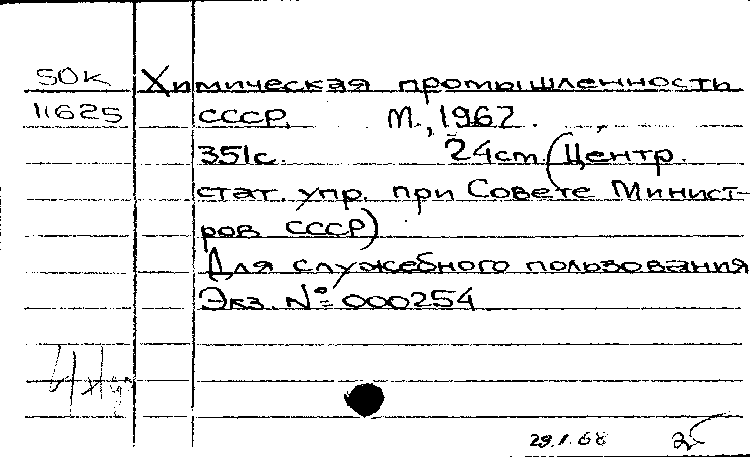 SOK Химическая промышленности
11625 СССР. М., 1967.
351с. 24cm. (Центр.
стат. упр. при Совете Минист-
ров СССР)
Для служебного пользования
Экз. № 000254
29.1.68